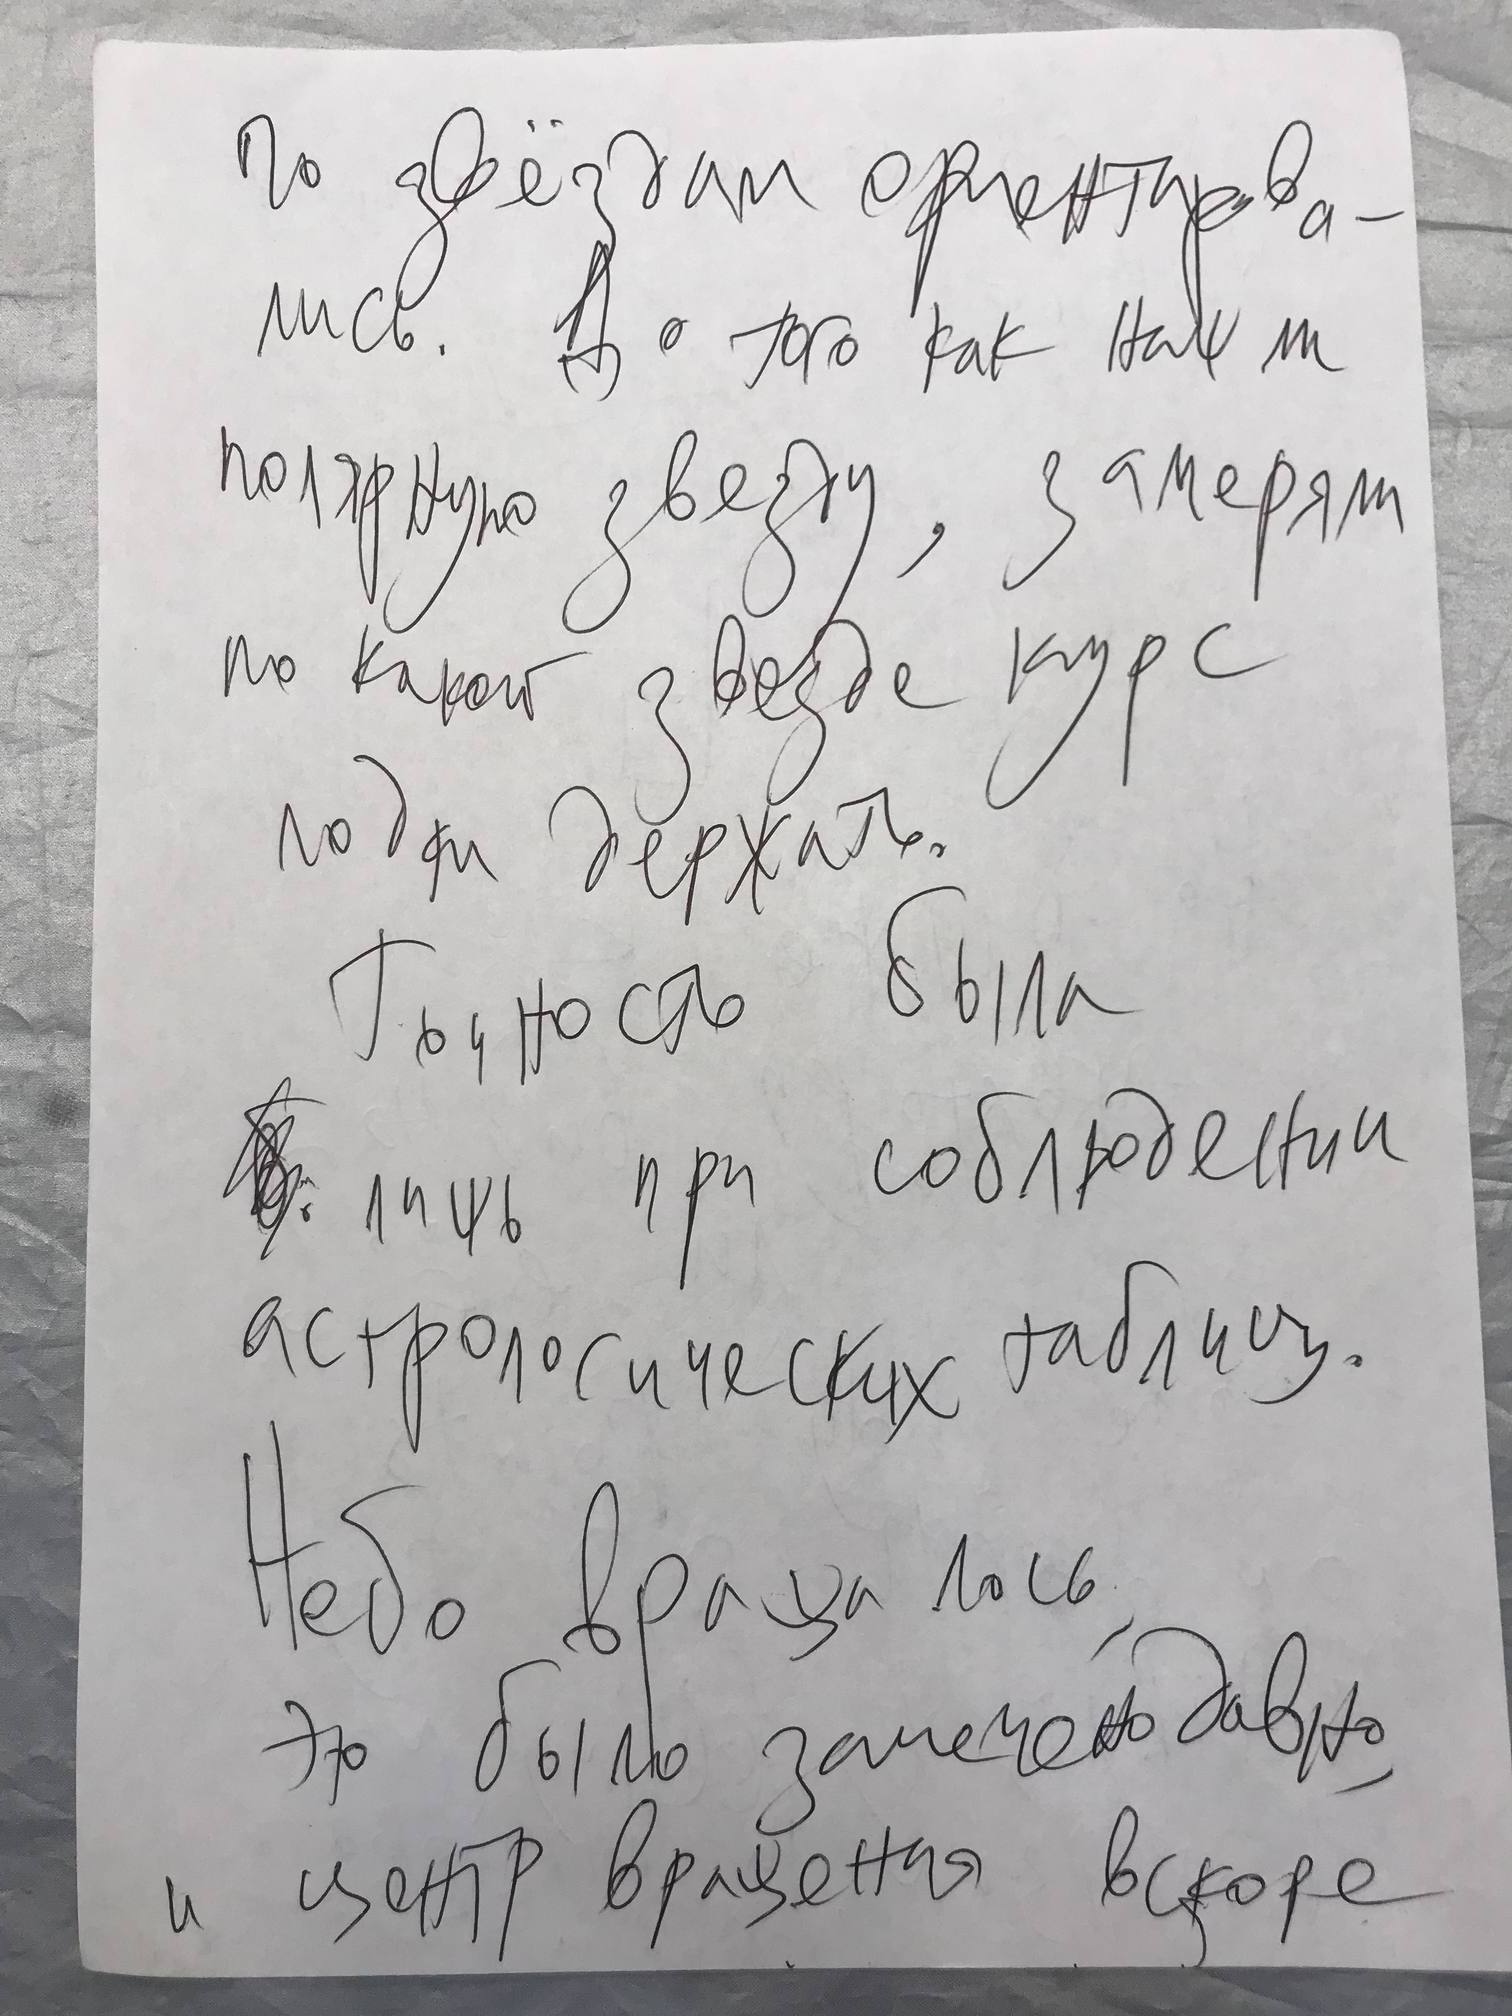 По звёздам ориентирова-
лись. До того как нашли
полярную звезду, замеряли
по какой звезде курс
лодки держать.
Точность была
лишь при соблюдении
астрологических таблиц.
Небо вращалось,
это было замечено давно,
и центр вращения вскоре